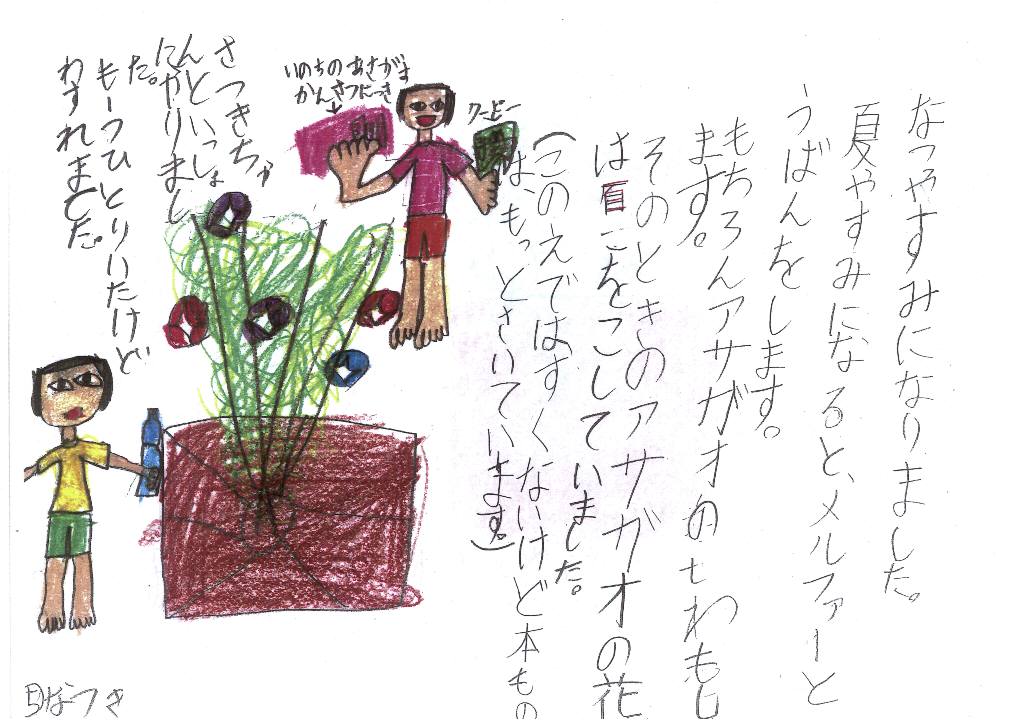 なつやすみになりました。
夏やすみになると、メルファーと
うばんをします。
もちろんアサガオのせわもし
ます。
そのときのアサガオの花
は百こをこしていました。
(このえではすくないけど本もの
は、もっとさいています。)
クーピー
いのちのあさがお
かんさつにっき
さつきちゃ
んといっしょ
にやりまし
た。
もう一つひとりいたけど
わすれました。
なつき